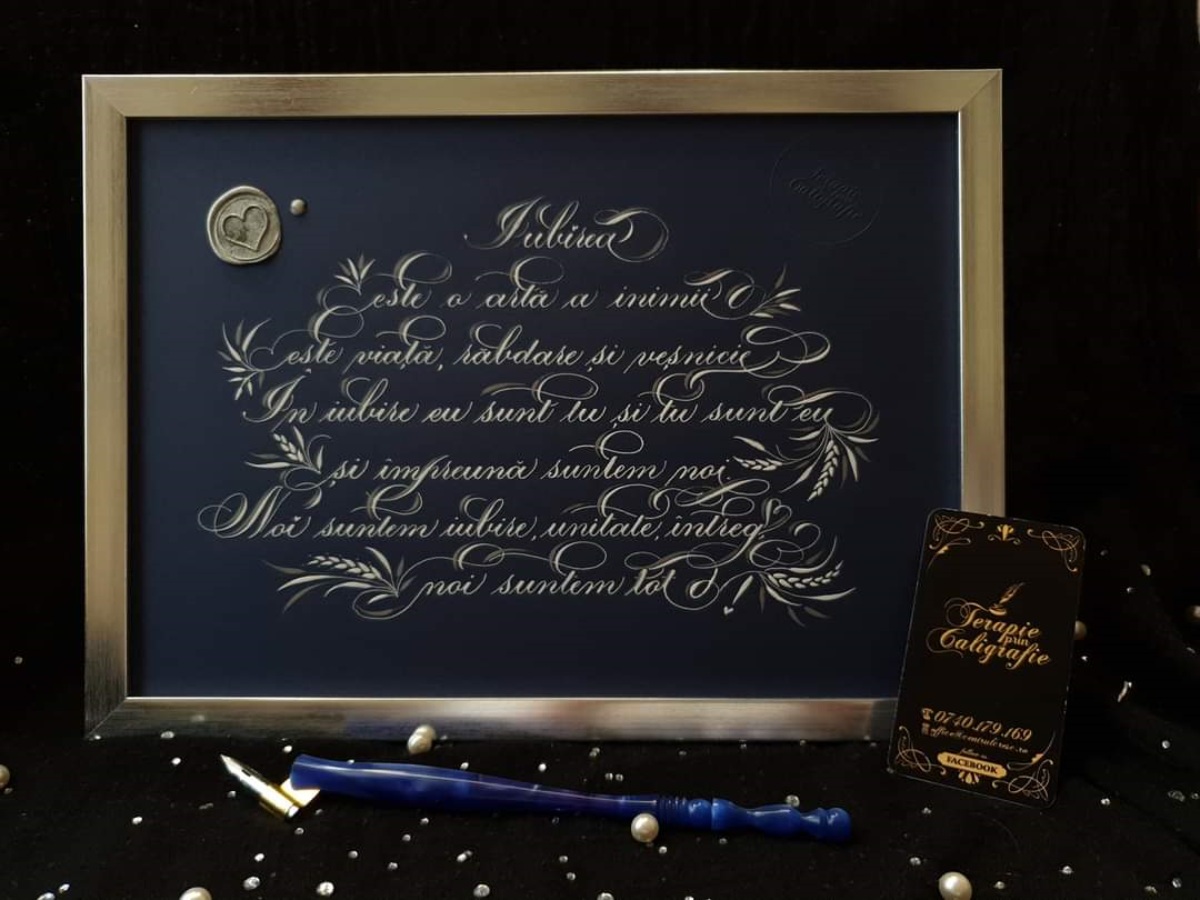 Iubirea
este o artă a inimii
este viață, răbdare și veșnicie
În iubire eu sunt tu și tu sunt eu
și împreună suntem noi
Noi suntem iubire, unitate, întreg
noi suntem tot
Terapie
prin
Caligrafie
Terapie
prin
Caligrafie
0740.179.169
follow us
FACEBOOK